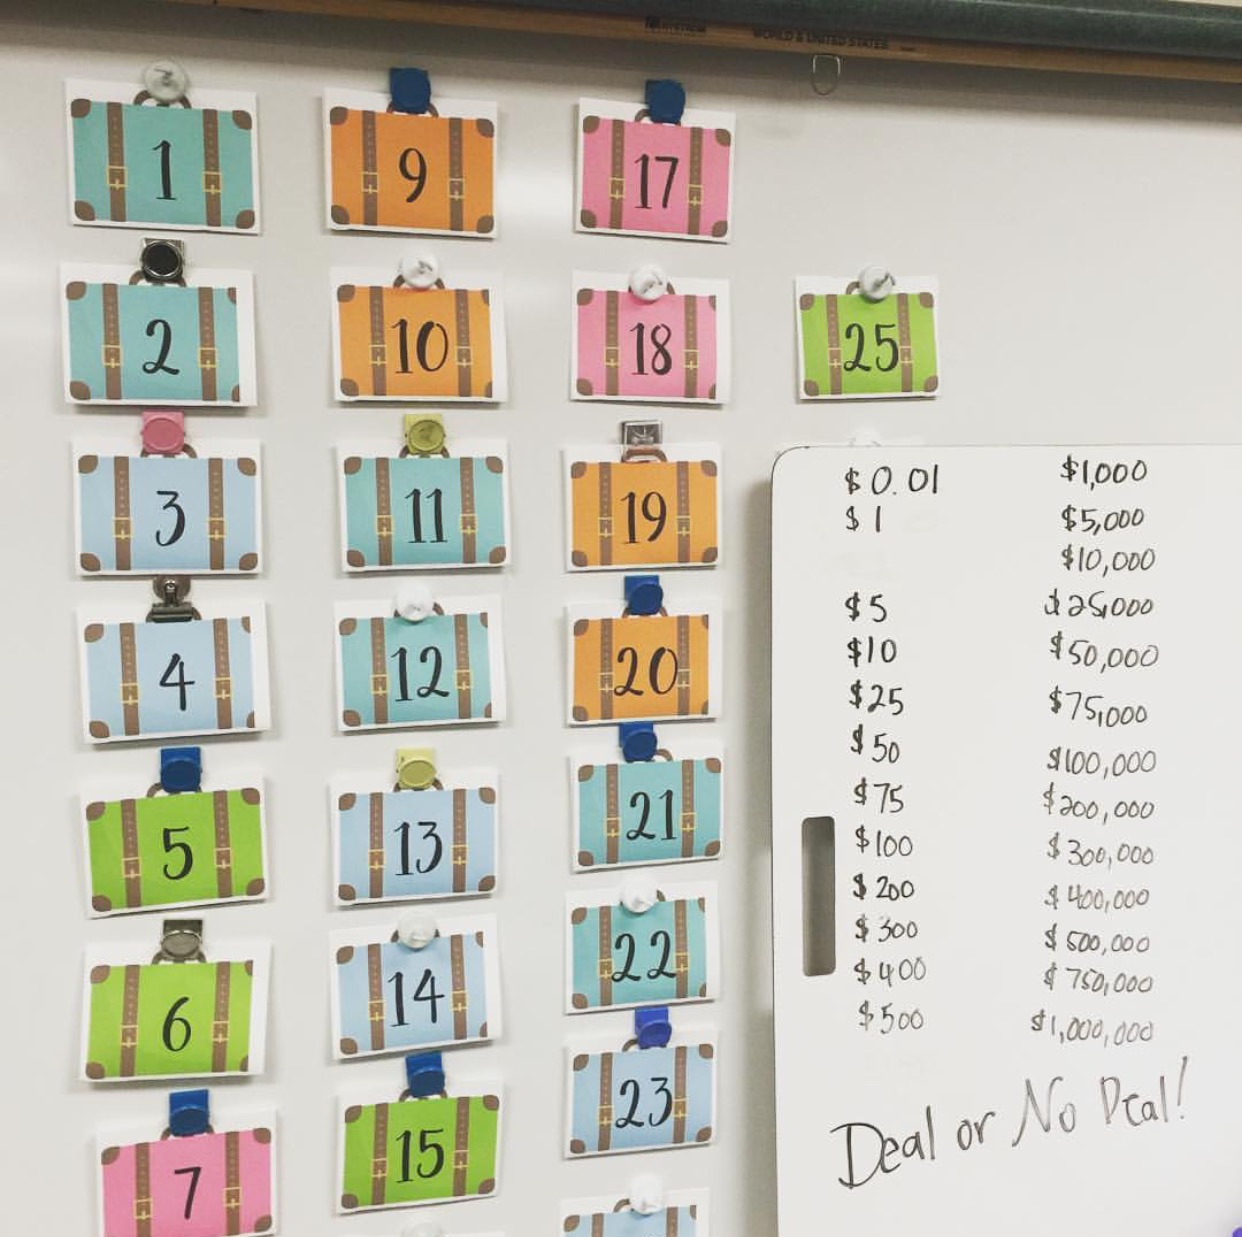 WORLD & UNITED STATES
1
2
3
4
5
6
7
9
10
11
12
13
14
15
17
18
19
20
21
22
23
25
$0.01
$1
$5
$10
$25
$50
$75
$100
$200
$300
$400
$500
$1,000
$5,000
$10,000
$25,000
$50,000
$75,000
$100,000
$200,000
$300,000
$400,000
$500,000
$750,000
$1,000,000
Deal or No Deal!